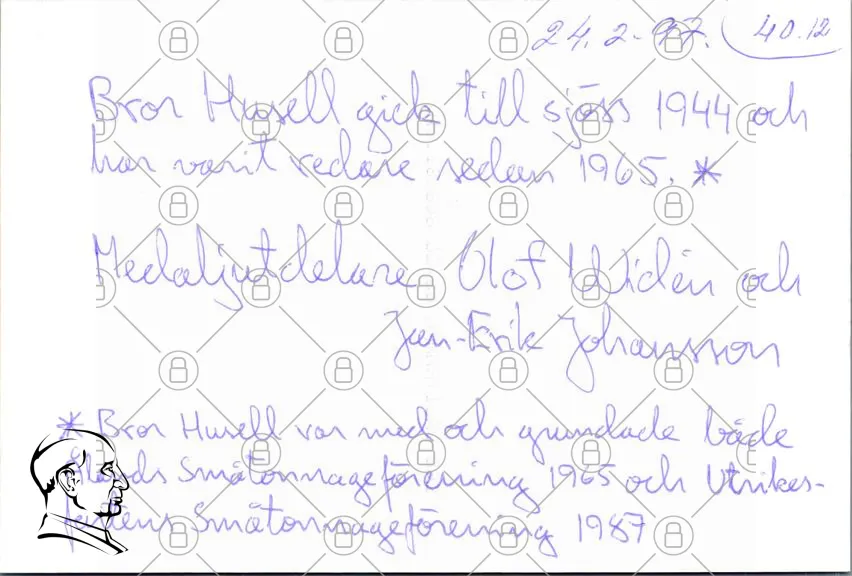 24.2.97. 40.12
Bror Husell gick till sjöss 1944 och
har varit redare sedan 1965. *
Medaljutdelare Olof Widén och
Jan-Erik Johansson
* Bror Husell var med och grundade både
Ålands Småtonnageförening 1965 och Utrikes-
fartens Småtonnageförening 1987